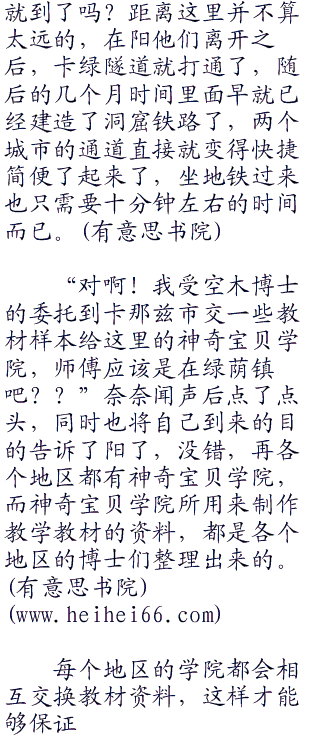 就到了吗？距离这里并不算
太远的，在阳他们离开之
后，卡绿隧道就打通了，随
后的几个月时间里面早就已
经建造了洞窟铁路了，两个
城市的通道直接就变得快捷
简便了起来了，坐地铁过来
也只需要十分钟左右的时间
而已。(有意思书院)
“对啊！我受空木博士
的委托到卡那兹市交一些教
材样本给这里的神奇宝贝学
院，师傅应该是在绿荫镇
吧？？”奈奈闻声后点了点
头，同时也将自己到来的目
的告诉了阳了，没错，再各
个地区都有神奇宝贝学院，
而神奇宝贝学院所用来制作
教学教材的资料，都是各个
地区的博士们整理出来的。
(有意思书院)
(www.heihei66.com)
每个地区的学院都会相
互交换教材资料，这样才能
够保证